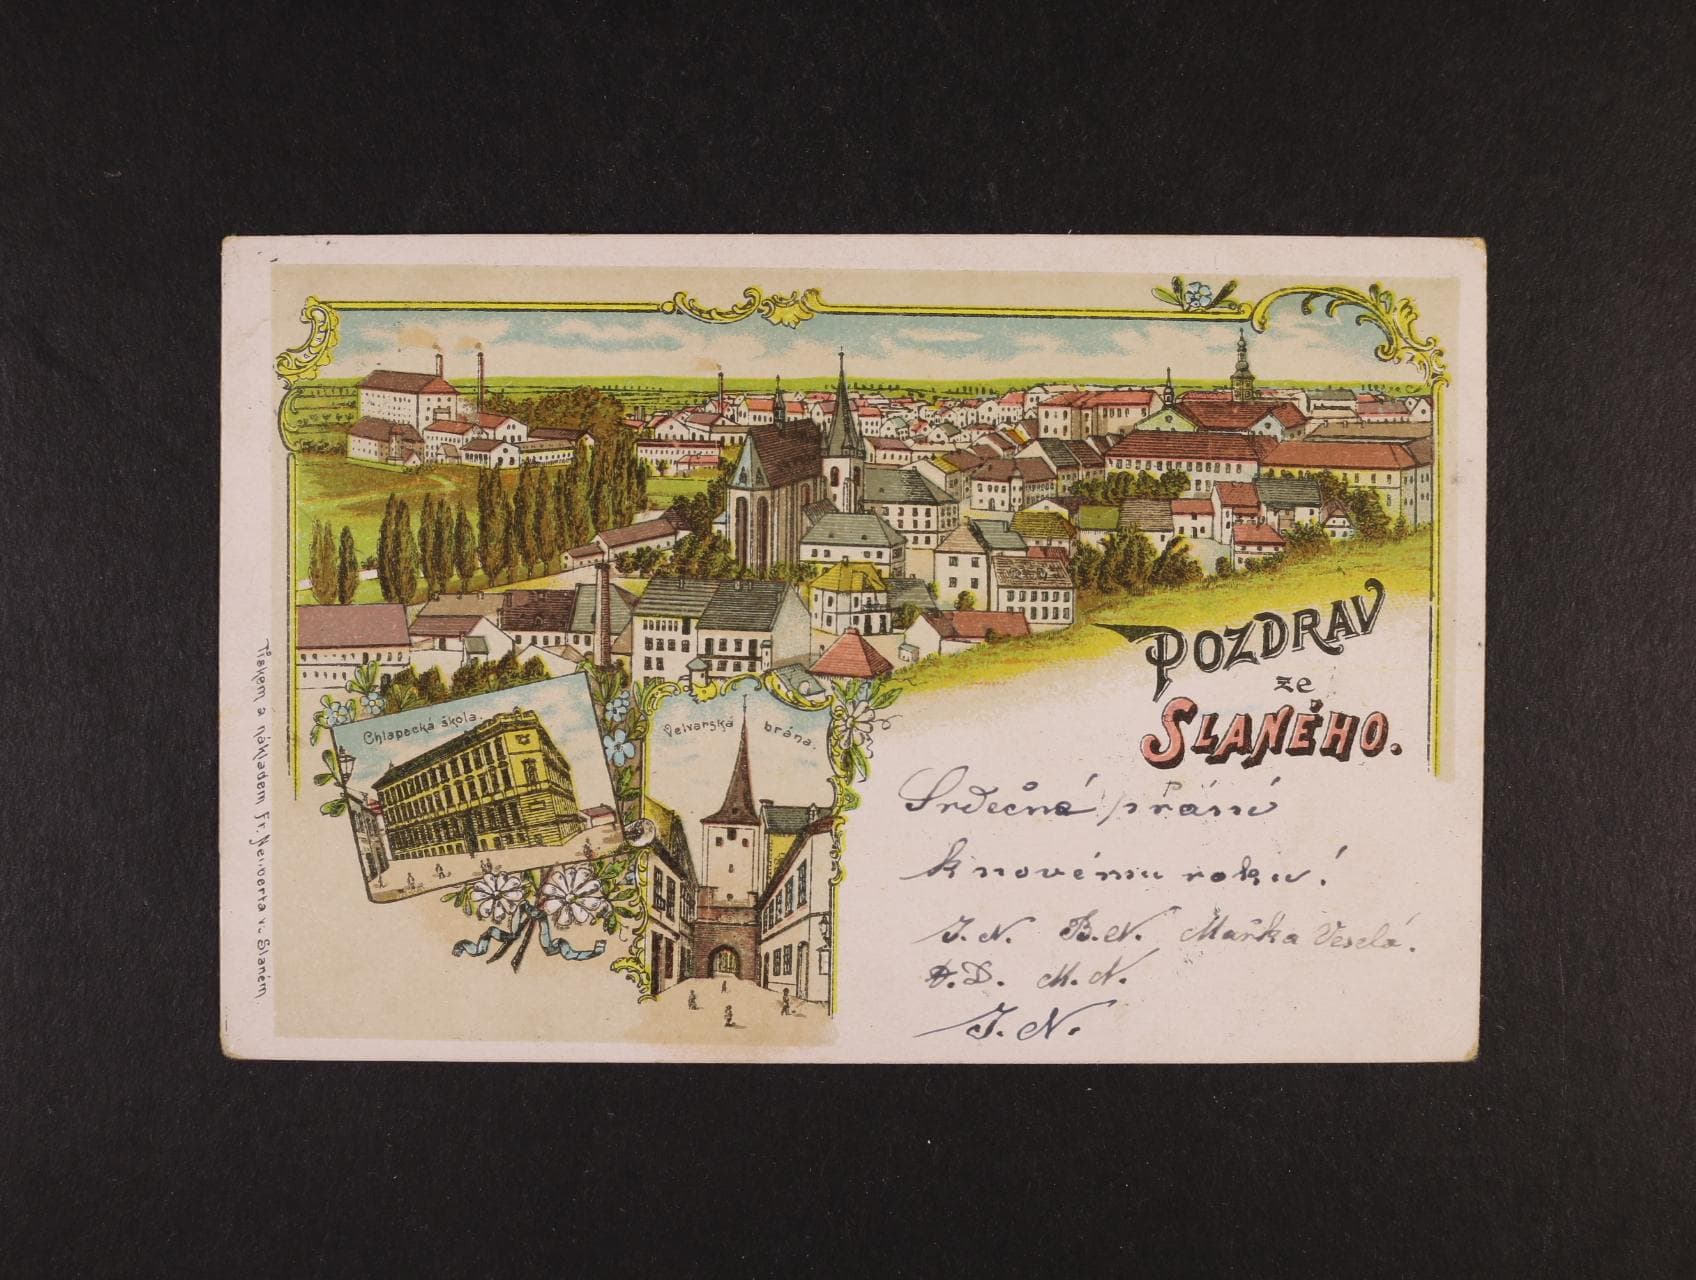 Chlapecká škola.
Velvarská brána.
POZDRAV
ze
SLANÉHO.
Srdečné přání
k novému roku!
J. N. B. N. Mařka Veselá.
D. M. N.
J. N.
Tiskem a nákladem Fr. Neuberta ve Slaném.